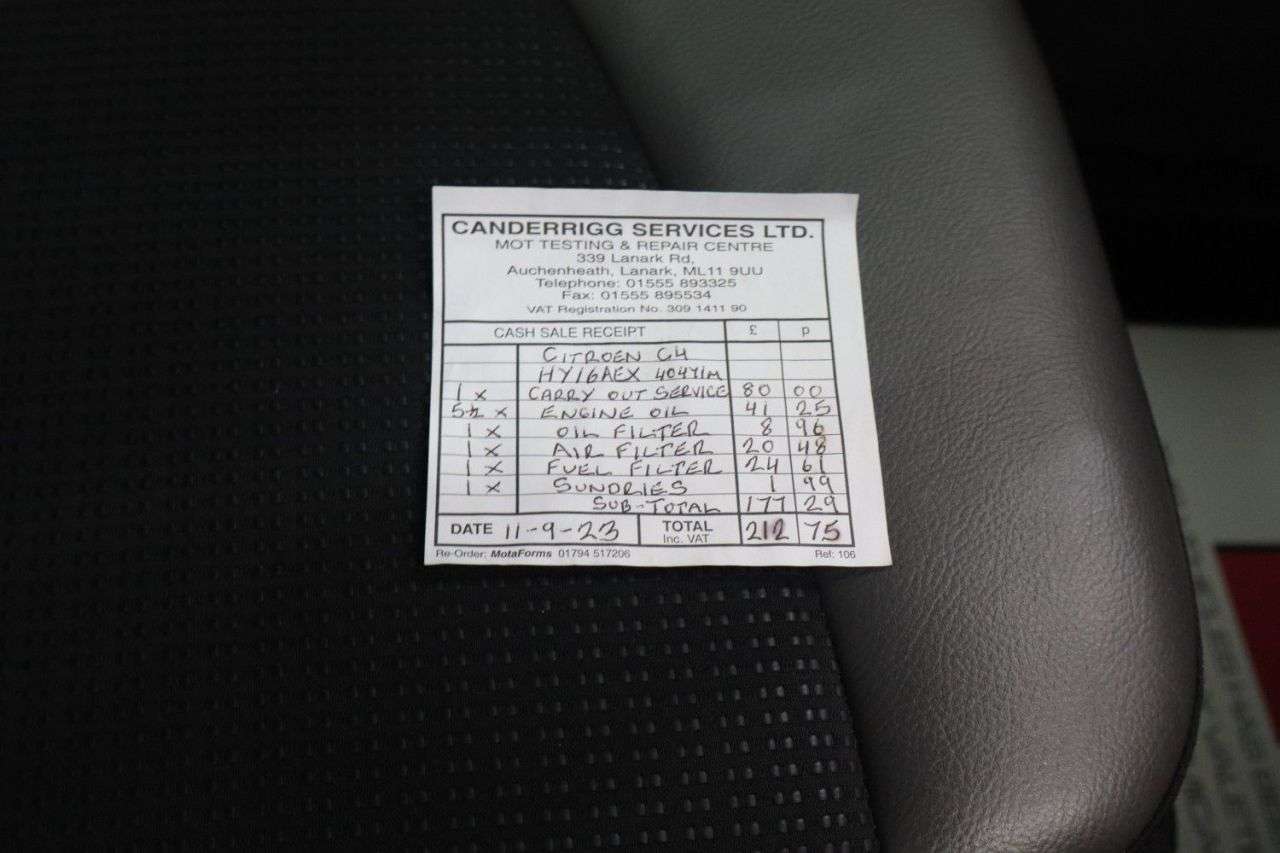 CANDERRIGG SERVICES LTD.
MOT TESTING & REPAIR CENTRE
339 Lanark Rd,
Auchenheath, Lanark, ML11 9UU
Telephone: 01555 893325
Fax: 01555 895534
VAT Registration No. 309 1411 90
CASH SALE RECEIPT £ p
CITROEN C4
HY16AEX 40471M
1 x CARRY OUT SERVICE 80 00
5½ x ENGINE OIL 41 25
1 x OIL FILTER 8 96
1 x AIR FILTER 20 48
1 x FUEL FILTER 24 61
1 x SUNDRIES 1 99
SUB-TOTAL 177 29
DATE 11-9-23 TOTAL Inc. VAT 212 75
Re-Order: MotaForms 01794 517206 Ref: 106